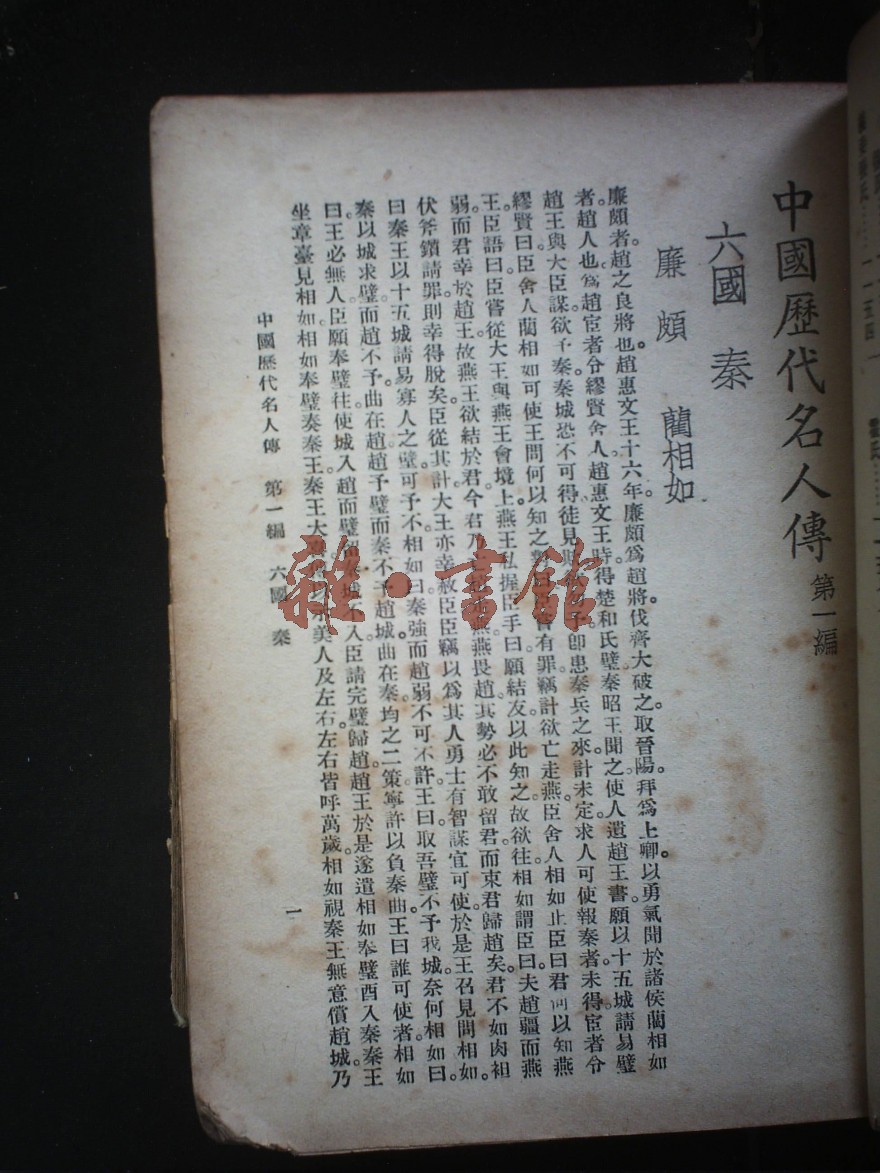 中國歷代名人傳 第一編
六國 秦
廉頗 藺相如
廉頗者。趙之良將也。趙惠文王十六年。廉頗爲趙將伐齊大破之。取晉陽。拜爲上卿。以勇氣聞於諸侯藺相如
者。趙人也。爲趙宦者令繆賢舍人。趙惠文王時。得楚和氏璧秦昭王聞之。使人遺趙王書。願以十五城請易璧
趙王與大臣謀欲予秦秦城恐不可得徒見欺。即患秦兵之來。計未定求人可使報秦者未得。宦者令
繆賢曰。臣舍人藺相如可使王問何以知之。對曰。有罪竊計欲亡走燕。臣舍人相如止臣曰君何以知燕
王。臣語曰。臣嘗從大王與燕王會境上。燕王私握臣手曰。願結友以此知之。故欲往相如謂臣曰。夫趙彊而燕
弱。而君幸於趙王。故燕王欲結於君今君乃燕。燕畏趙。其勢必不敢留君而束君歸趙矣。君不如肉袒
伏斧鑕請罪。則幸得脫矣。臣從其計。大王亦幸赦臣。臣竊以爲其人勇士。有智謀宜可使。於是王召見問相如。
曰。秦王以十五城請易寡人之璧可予不。相如曰。秦強而趙弱不可不許。王曰。取吾璧不予我城奈何。相如曰。
秦以城求璧而趙不予曲在趙。趙予璧而秦不予趙城。曲在秦。均之二策寧許以負秦曲王曰。誰可使者。相如
曰。王必無人。臣願奉璧往使。城入趙而璧留秦。城不入。臣請完璧歸趙。趙王於是遂遣相如奉璧西入秦秦王
坐章臺見相如相如奉璧奏秦王。秦王大以示美人及左右。左右皆呼萬歲。相如視秦王無意償趙城。乃
中國歷代名人傳 第一編 六國 秦
一
雜·書館